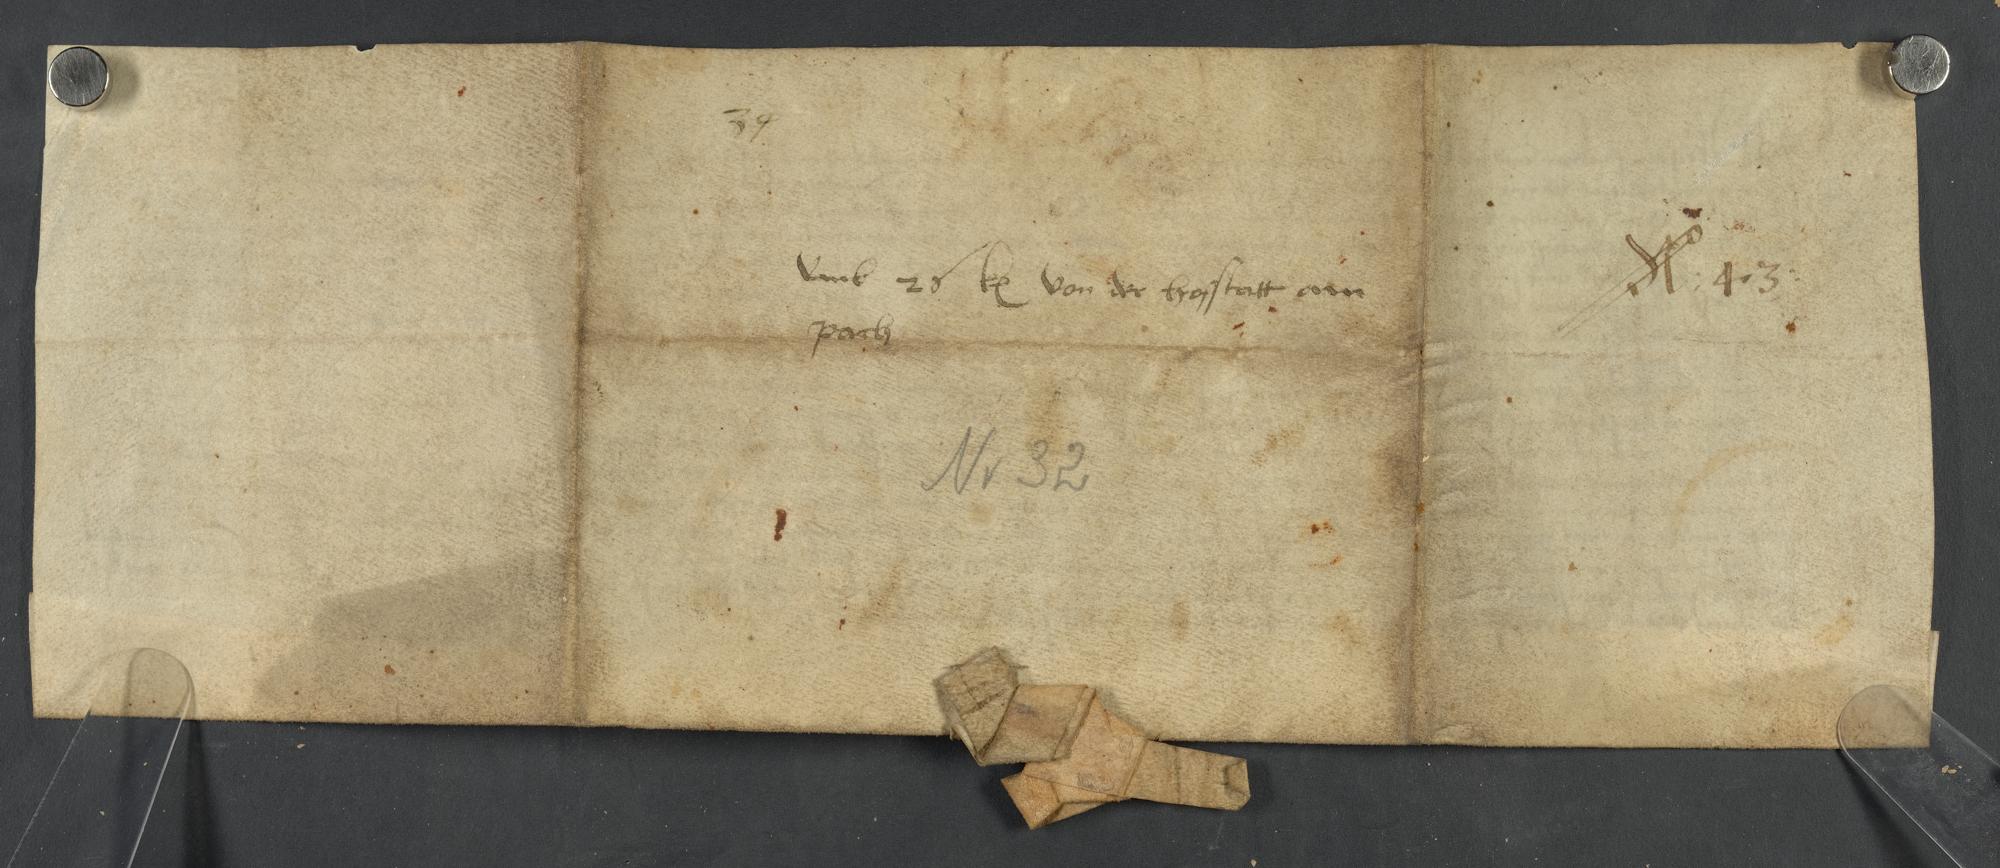 34
vmb 28 kr von der hofstatt am
pach
N: 43:
Nr 32